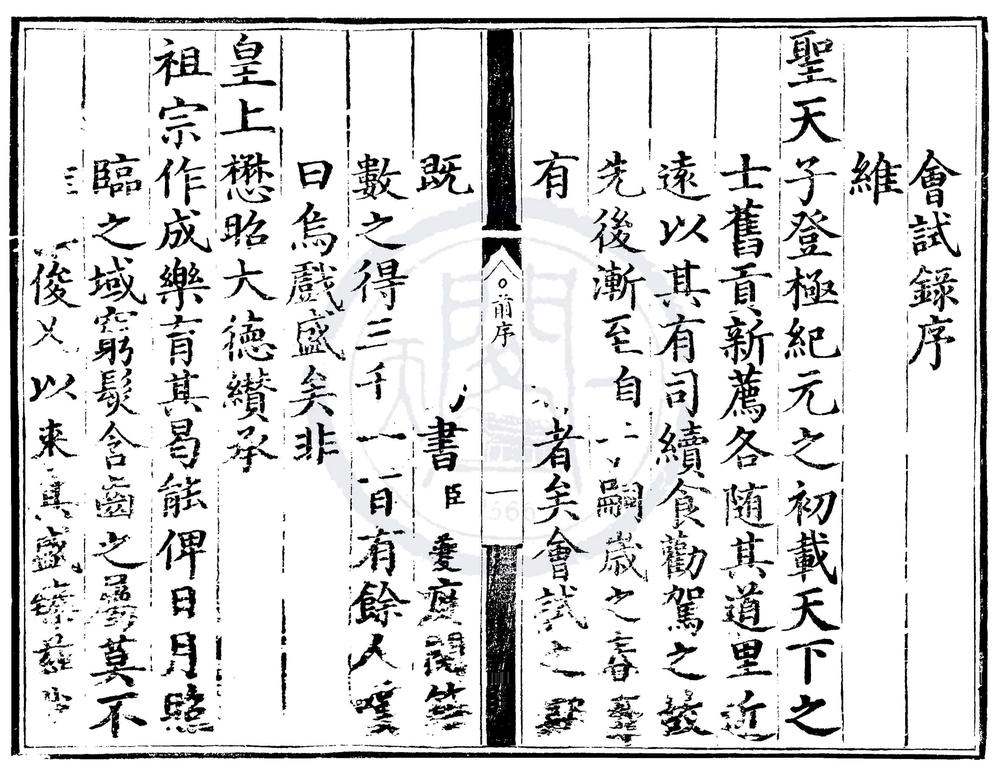 會試錄序
維
聖天子登極紀元之初載天下之
士舊貢新薦各隨其道里近
遠以其有司續食勸駕之
先後漸至自嗣歲之春
有者矣會試之
前序
一
既書臣夔
數之得三千一百有餘人嘆
曰烏戲盛矣非
皇上懋昭大德纘承
祖宗作成樂育其曷能俾日月照
臨之域窮髮含齒之屬莫不
俊乂以來其盛